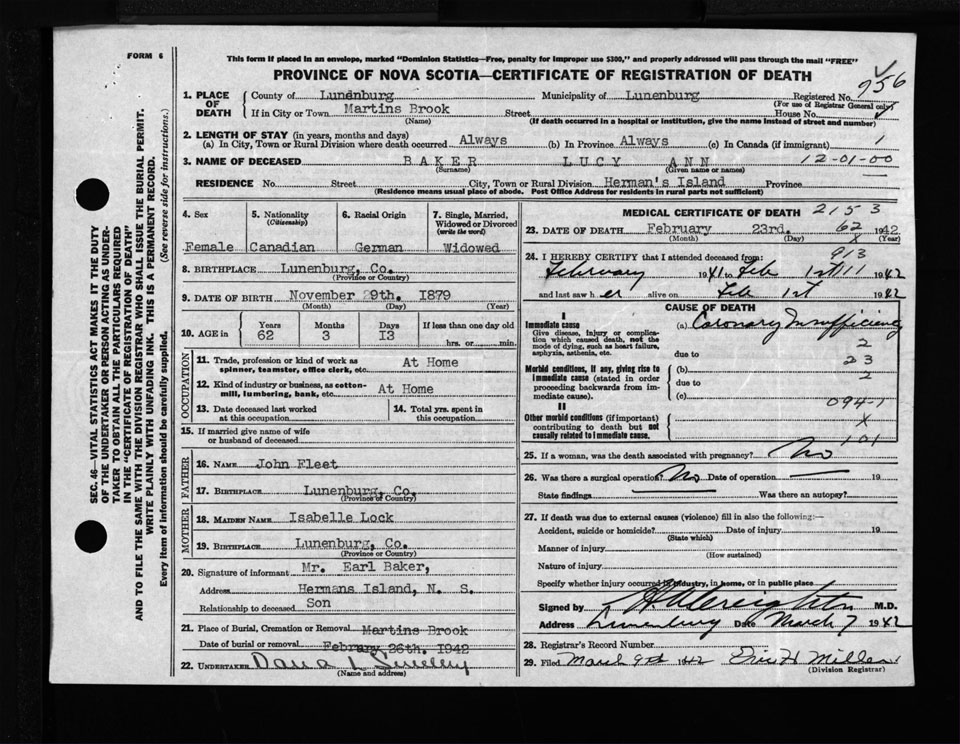 FORM 6
SEC. 46—VITAL STATISTICS ACT MAKES IT THE DUTY
OF THE UNDERTAKER OR PERSON ACTING AS UNDER-
TAKER TO OBTAIN ALL THE PARTICULARS REQUIRED
IN THE "CERTIFICATE OF REGISTRATION OF DEATH"
AND TO FILE THE SAME WITH THE DIVISION REGISTRAR WHO SHALL ISSUE THE BURIAL PERMIT.
WRITE PLAINLY WITH UNFADING INK. THIS IS A PERMANENT RECORD.
Every item of information should be carefully supplied. (See reverse side for instructions.)
This form if placed in an envelope, marked "Dominion Statistics—Free, penalty for improper use $300," and properly addressed will pass through the mail "FREE"
PROVINCE OF NOVA SCOTIA—CERTIFICATE OF REGISTRATION OF DEATH
956
1. PLACE OF DEATH County of Lunenburg Municipality of Lunenburg Registered No.
(For use of Registrar General only)
If in City or Town Martins Brook Street House No.
(Name) (If death occurred in a hospital or institution, give the name instead of street and number)
2. LENGTH OF STAY (in years, months and days)
(a) In City, Town or Rural Division where death occurred Always (b) In Province Always (c) In Canada (if immigrant) 1
3. NAME OF DECEASED BAKER LUCY ANN 12-01-00
(Surname) (Given name or names)
RESIDENCE No. Street City, Town or Rural Division Herman's Island Province
(Residence means usual place of abode. Post Office Address for residents in rural parts not sufficient)
4. Sex 5. Nationality (Citizenship) 6. Racial Origin 7. Single, Married, Widowed or Divorced (write the word)
Female Canadian German Widowed
8. BIRTHPLACE Lunenburg, Co.
(Province or Country)
9. DATE OF BIRTH November 29th. 1879
(Month) (Day) (Year)
10. AGE in Years Months Days If less than one day old
62 3 13 hrs. or min.
OCCUPATION
11. Trade, profession or kind of work as
spinner, teamster, office clerk, etc. At Home
12. Kind of industry or business, as cotton-
mill, lumbering, bank, etc. At Home
13. Date deceased last worked
at this occupation
14. Total yrs. spent in
this occupation
15. If married give name of wife
or husband of deceased
FATHER
16. NAME John Fleet
17. BIRTHPLACE Lunenburg, Co.
(Province or Country)
MOTHER
18. MAIDEN NAME Isabelle Lock
19. BIRTHPLACE Lunenburg, Co.
(Province or Country)
20. Signature of informant Mr. Earl Baker,
Address Hermans Island, N. S.
Relationship to deceased Son
21. Place of Burial, Cremation or Removal Martins Brook
Date of burial or removal February 26th. 1942
22. UNDERTAKER
(Name and address)
MEDICAL CERTIFICATE OF DEATH 2153
23. DATE OF DEATH February 23rd. 1942
62
(Month) (Day) X (Year)
24. I HEREBY CERTIFY that I attended deceased from: 913
February 1941 to Feb 1st 11 1942
and last saw her alive on Feb 1st 1942
CAUSE OF DEATH
I
Immediate cause (a) Coronary Insufficiency
Give disease, injury or complica-
tion which caused death, not the
mode of dying, such as heart failure,
asphyxia, asthenia, etc. due to
2
23
Morbid conditions, if any, giving rise to (b)
2
immediate cause (stated in order due to
proceeding backwards from im-
mediate cause). (c)
094-1
II
Other morbid conditions (if important)
contributing to death but not
causally related to immediate cause. X
101
25. If a woman, was the death associated with pregnancy? No
26. Was there a surgical operation? No Date of operation 19
State findings Was there an autopsy?
27. If death was due to external causes (violence) fill in also the following:—
Accident, suicide or homicide? Date of injury 19
(State which)
Manner of injury
(How sustained)
Nature of injury
Specify whether injury occurred in industry, in home, or in public place
Signed by Creighton M.D.
Address Lunenburg Date March 7 1942
28. Registrar's Record Number
29. Filed March 9th 1942 Eric H Miller
(Division Registrar)